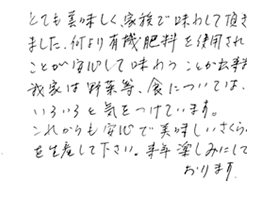 とても美味しく、家族で味わして頂き
ました。何より有機肥料を使用され
ことが安心して味わうことが出来
我家は野菜等、食については、
いろいろと気をつけています。
これからも安心で美味しいさくら
を生産して下さい。来年楽しみにして
おります。